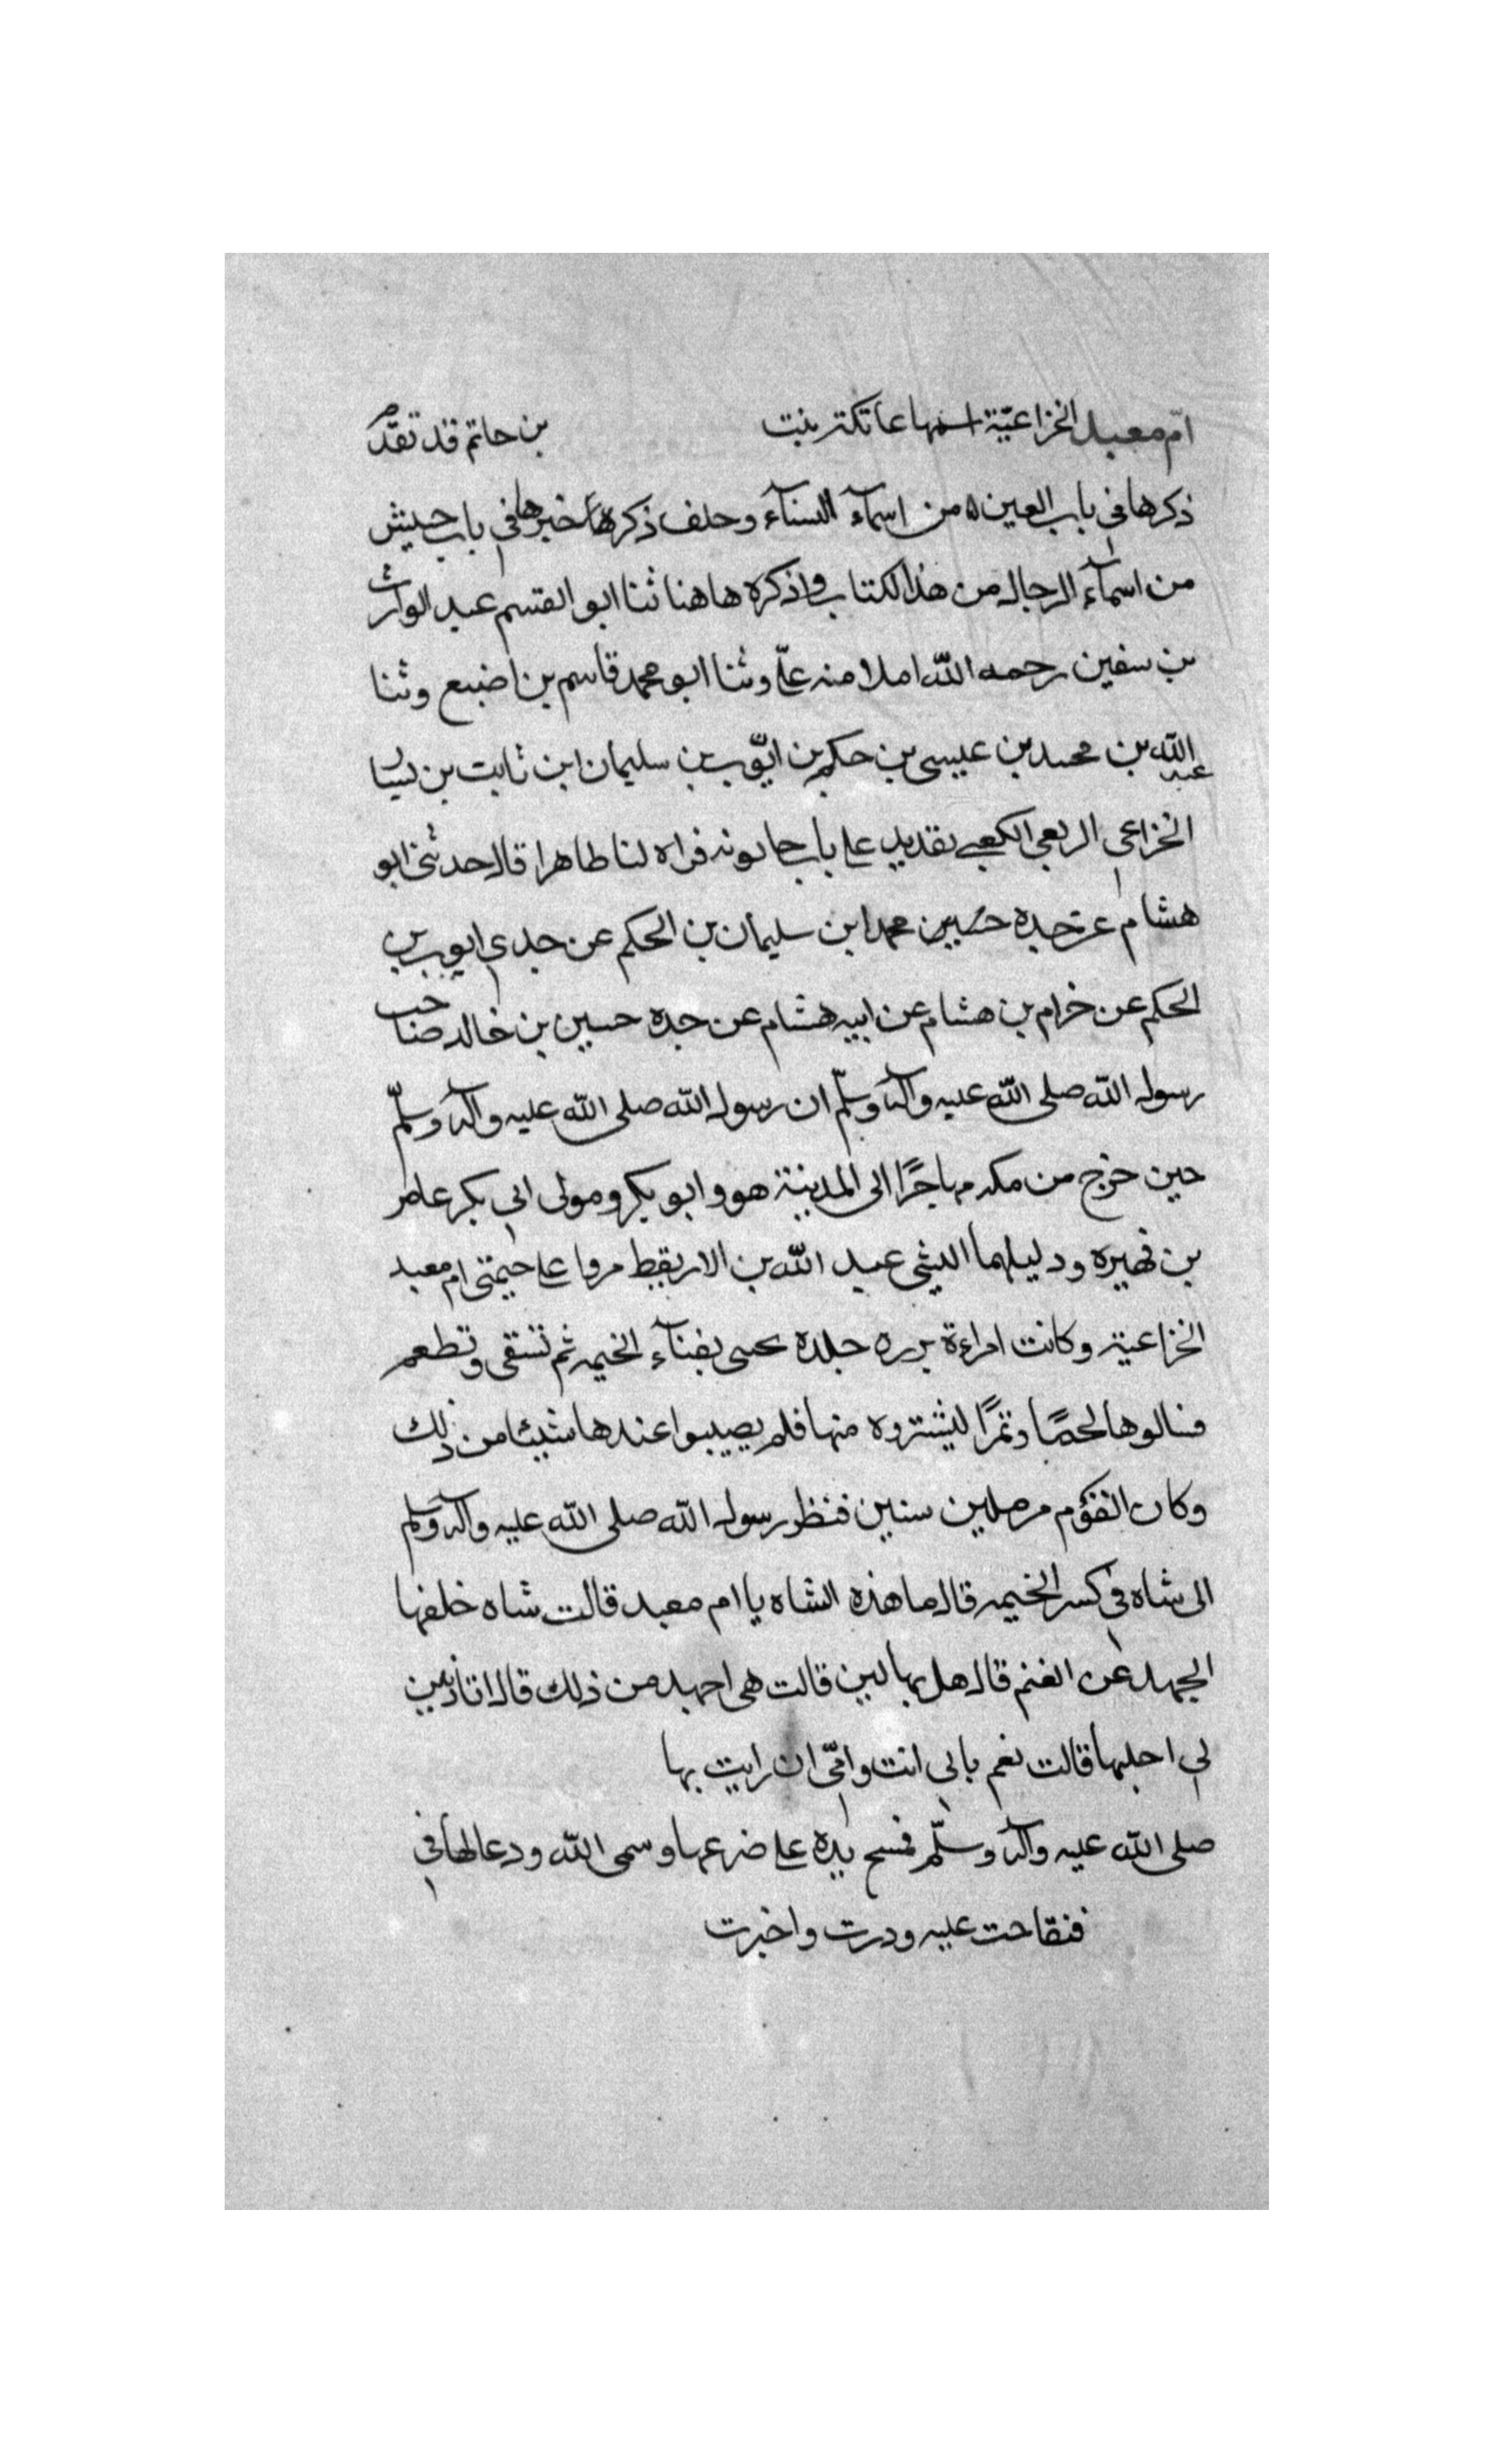 امّ معبد الخزاعيّة اسمها عاتكة بنت بن حاتم قد تقدّم
ذكرها في باب العين من اسمآء النسآء وحلف ذكرها خبرها في باب حبيش
من اسمآء الرجال من هذا الكتاب واذكره هاهنا ثنا ابو القسم عبد الوارث
بن سفين رحمه الله املا منه علىّ وثنا ابو محمد قاسم بن اضبع وثنا
عبد الله بن محمد بن عيسى بن حكم بن ايّوب بن سليمان ابن ثابت بن يسار
الخزاعي الربعي الكعبي بقديد على باب حانوته قراه لنا طاهرا قال حدثني ابو
هشام عن جده حسين محمد ابن سليمان بن الحكم عن جدي ايوب بن
الحكم عن خرام بن هشام عن ابيه هشام عن جده حسين بن خالد صاحب
رسول الله صلى الله عليه وآله وسلّم ان رسول الله صلى الله عليه وآله وسلّم
حين خرج من مكه مهاجرًا الى المدينة هو وابو بكر ومولى ابي بكر عامر
بن فهيره ودليلهما الليثي عبد الله بن الاريقيط مروا على خيمتى ام معبد
الخزاعية وكانت امراءة برره جلده تحتبى بفنآء الخيمه ثم تسقى وتطعم
فسالوها لحمًا وتمرًا ليشتروه منها فلم يصيبوا عندها شيئا من ذلك
وكان القوم مرملين سنين فنظر رسول الله صلى الله عليه وآله وسلم
الى شاه في كسر الخيمه قال ما هذه الشاه يا ام معبد قالت شاه خلفها
الجهد عن الغنم قال هل بها لبن قالت هى اجهد من ذلك قال اتاذنين
لي احلبها قالت نعم بابي انت وامّى ان رايت بها
صلى الله عليه وآله وسلّم فمسح يده على ضرعها وسمى الله ودعا لها في
فتقاحت عليه ودرت واخبرت